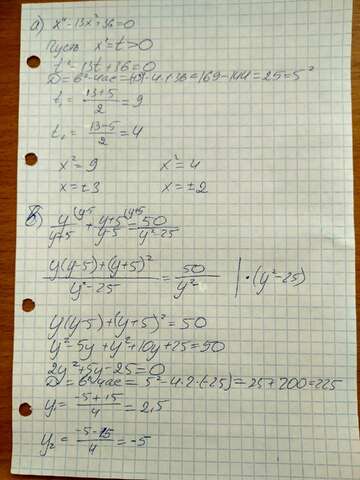 а) x⁴-13x²+36=0
Пусть x²=t>0
t²-13t+36=0
D=b²-4ac=169-4·36=169-144=25=5²
t₁=(13+5)/2=9
t₂=(13-5)/2=4
x²=9 x²=4
x=±3 x=±2
в) y/(y+5) (y-5 + (y+5)/(y-5) (y+5 = 50/(y²-25)
(y(y-5)+(y+5)²)/(y²-25)=50/y²- |·(y²-25)
y(y-5)+(y+5)²=50
y²-5y+y²+10y+25=50
2y²+5y-25=0
D=b²-4ac=5²-4·2·(-25)=25+200=225
y₁=(-5+15)/4=2,5
y₂=(-5-15)/4=-5